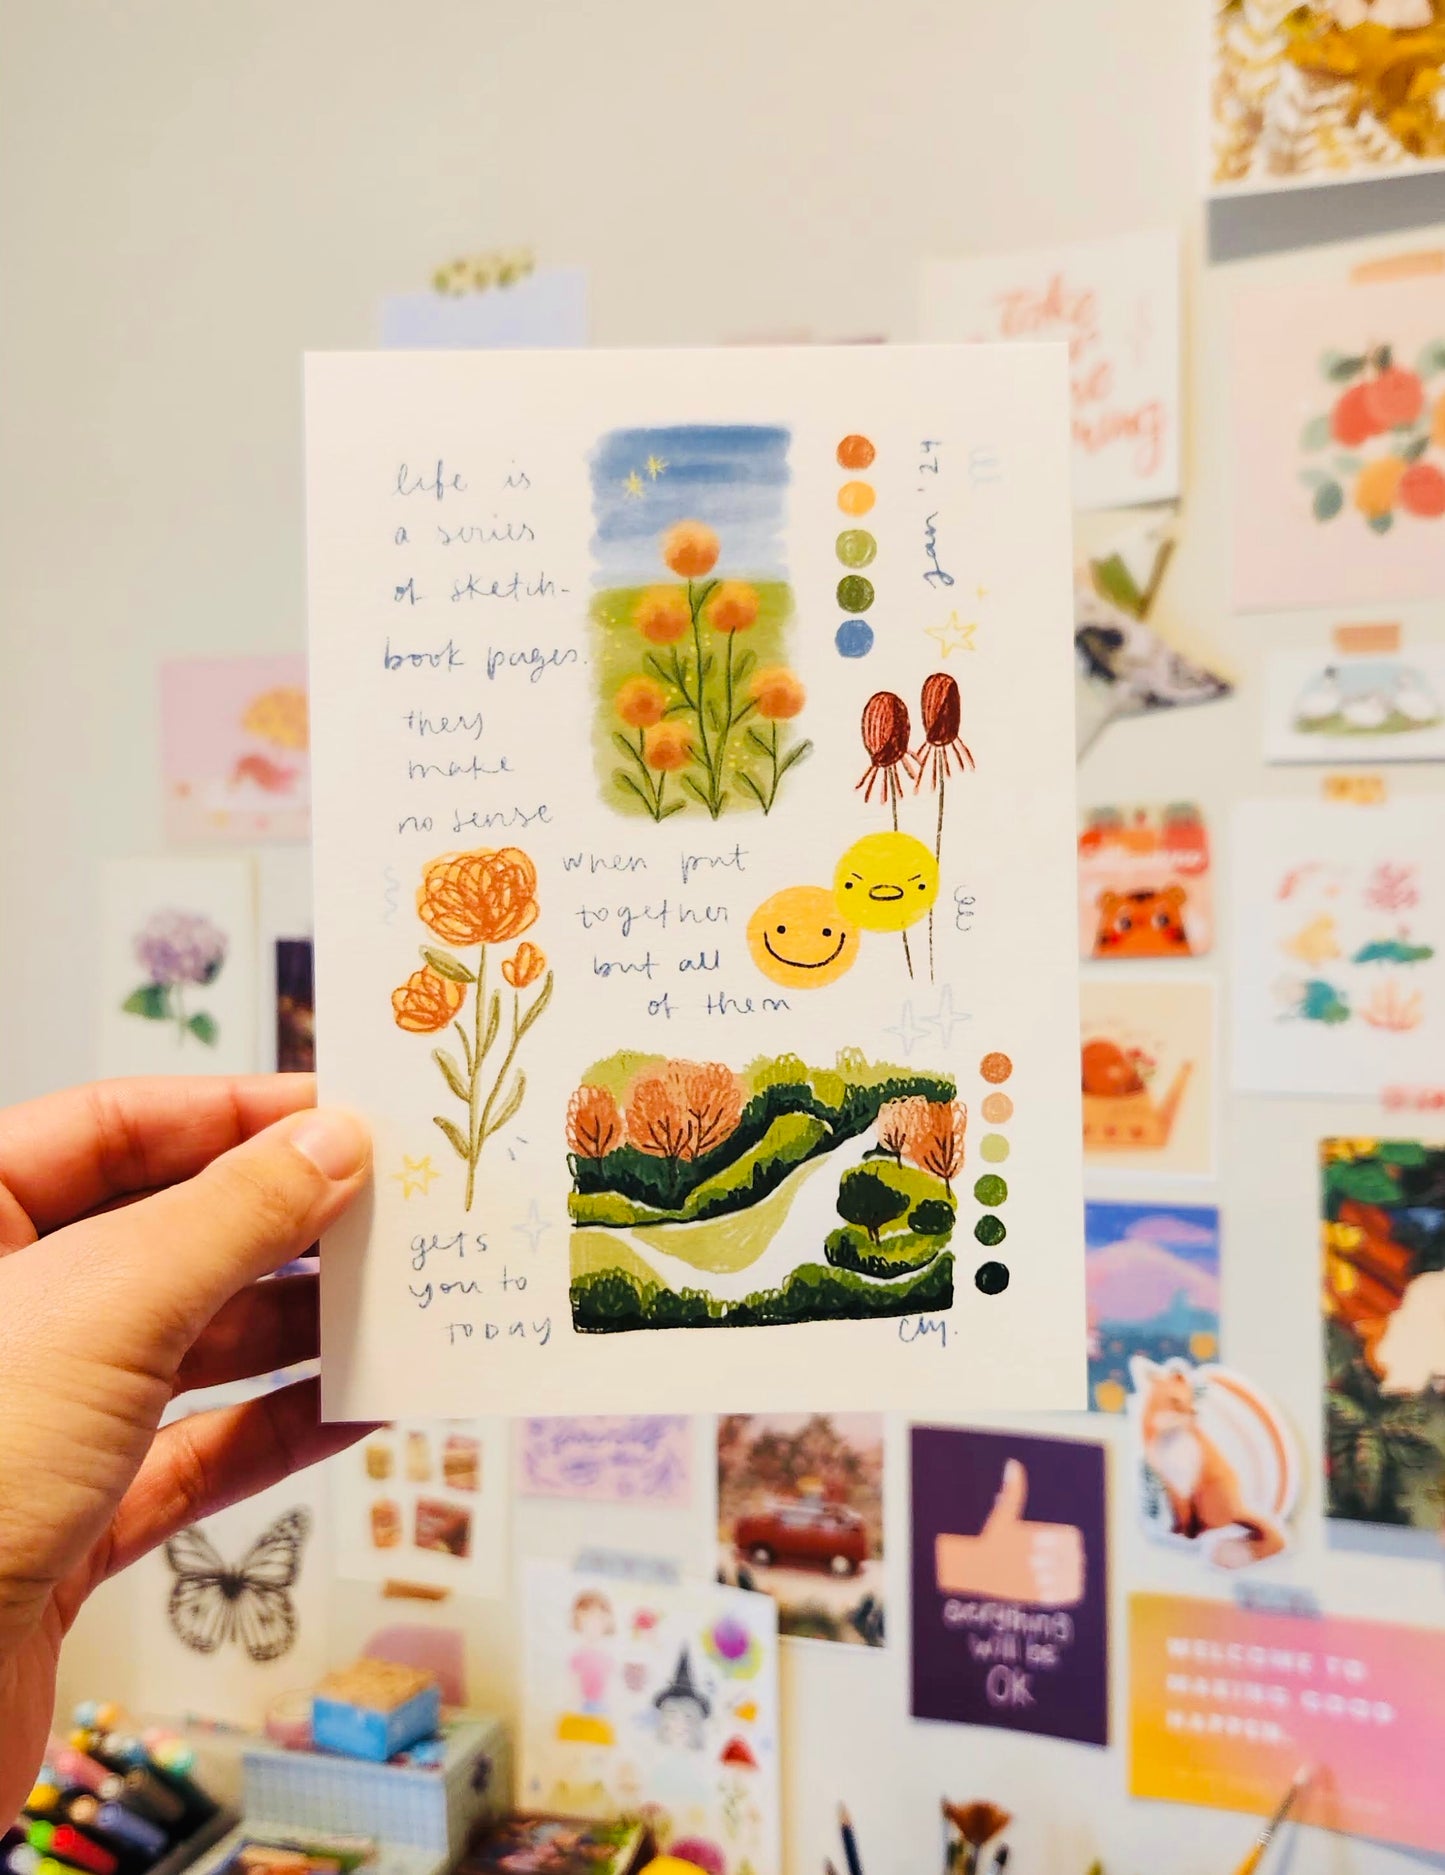 life is
a series
of sketch-
book pages.
they
make
no sense
when put
together
but all
of them
gets
you to
TODAY
Jan '24
Take
everything
will be
OK
WELCOME TO
MAKING GOOD
HAPPEN.